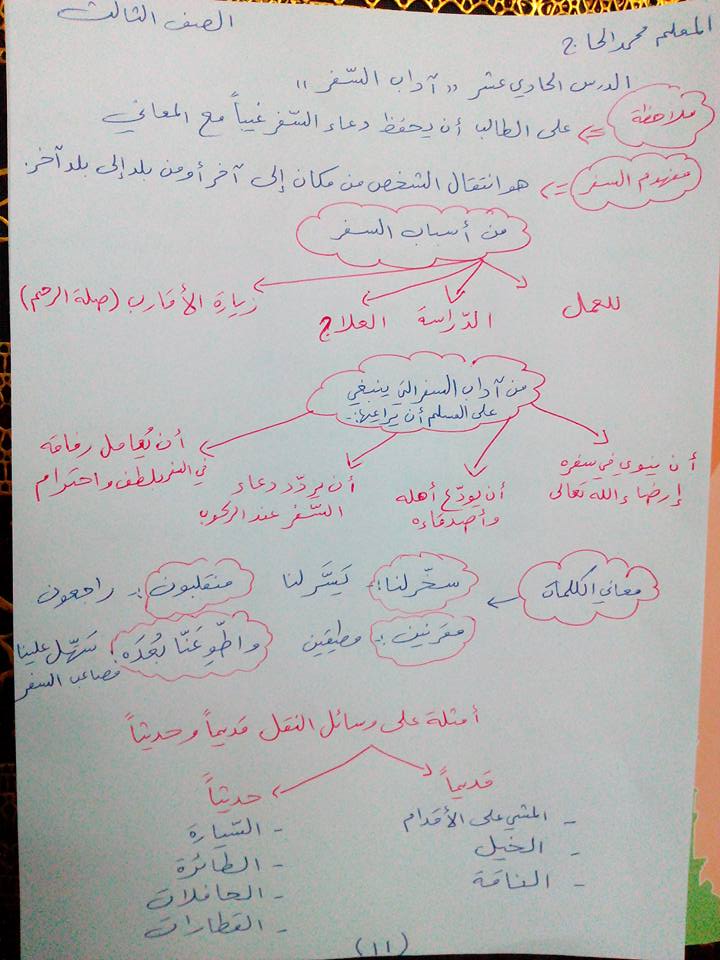 المعلم محمد الحاج
الصف الثالث
الدرس الحادي عشر "آداب السّفر"
ملاحظة <= على الطالب أن يحفظ دعاء السّفر غيباً مع المعاني
مفهوم السفر <= هو انتقال الشخص من مكان إلى آخر أو من بلد إلى بلد آخر.
من أسباب السفر
للعمل
الدّراسة
العلاج
زيارة الأقارب (صلة الرحم)
من آداب السفر التي ينبغي
على المسلم أن يراعيها:-
أن ينوي في سفره
إرضاء الله تعالى
أن يودّع أهله
وأصدقاءه
أن يردّد دعاء
السّفر عند الركوب
أن يُعامل رفاقه
في السفر بلطف واحترام
معاني الكلمات
سخّر لنا:- يَسَّر لنا
منقلبون:- راجعون
مقرنين:- مطيقين
واطْوِ عَنّا بُعْدَه: سَهّل علينا
مصاعب السفر
أمثلة على وسائل النقل قديماً وحديثاً
قديماً
- المشي على الأقدام
- الخيل
- الناقة
حديثاً
- السّيارة
- الطائرة
- الحافلات
- القطارات
(11)